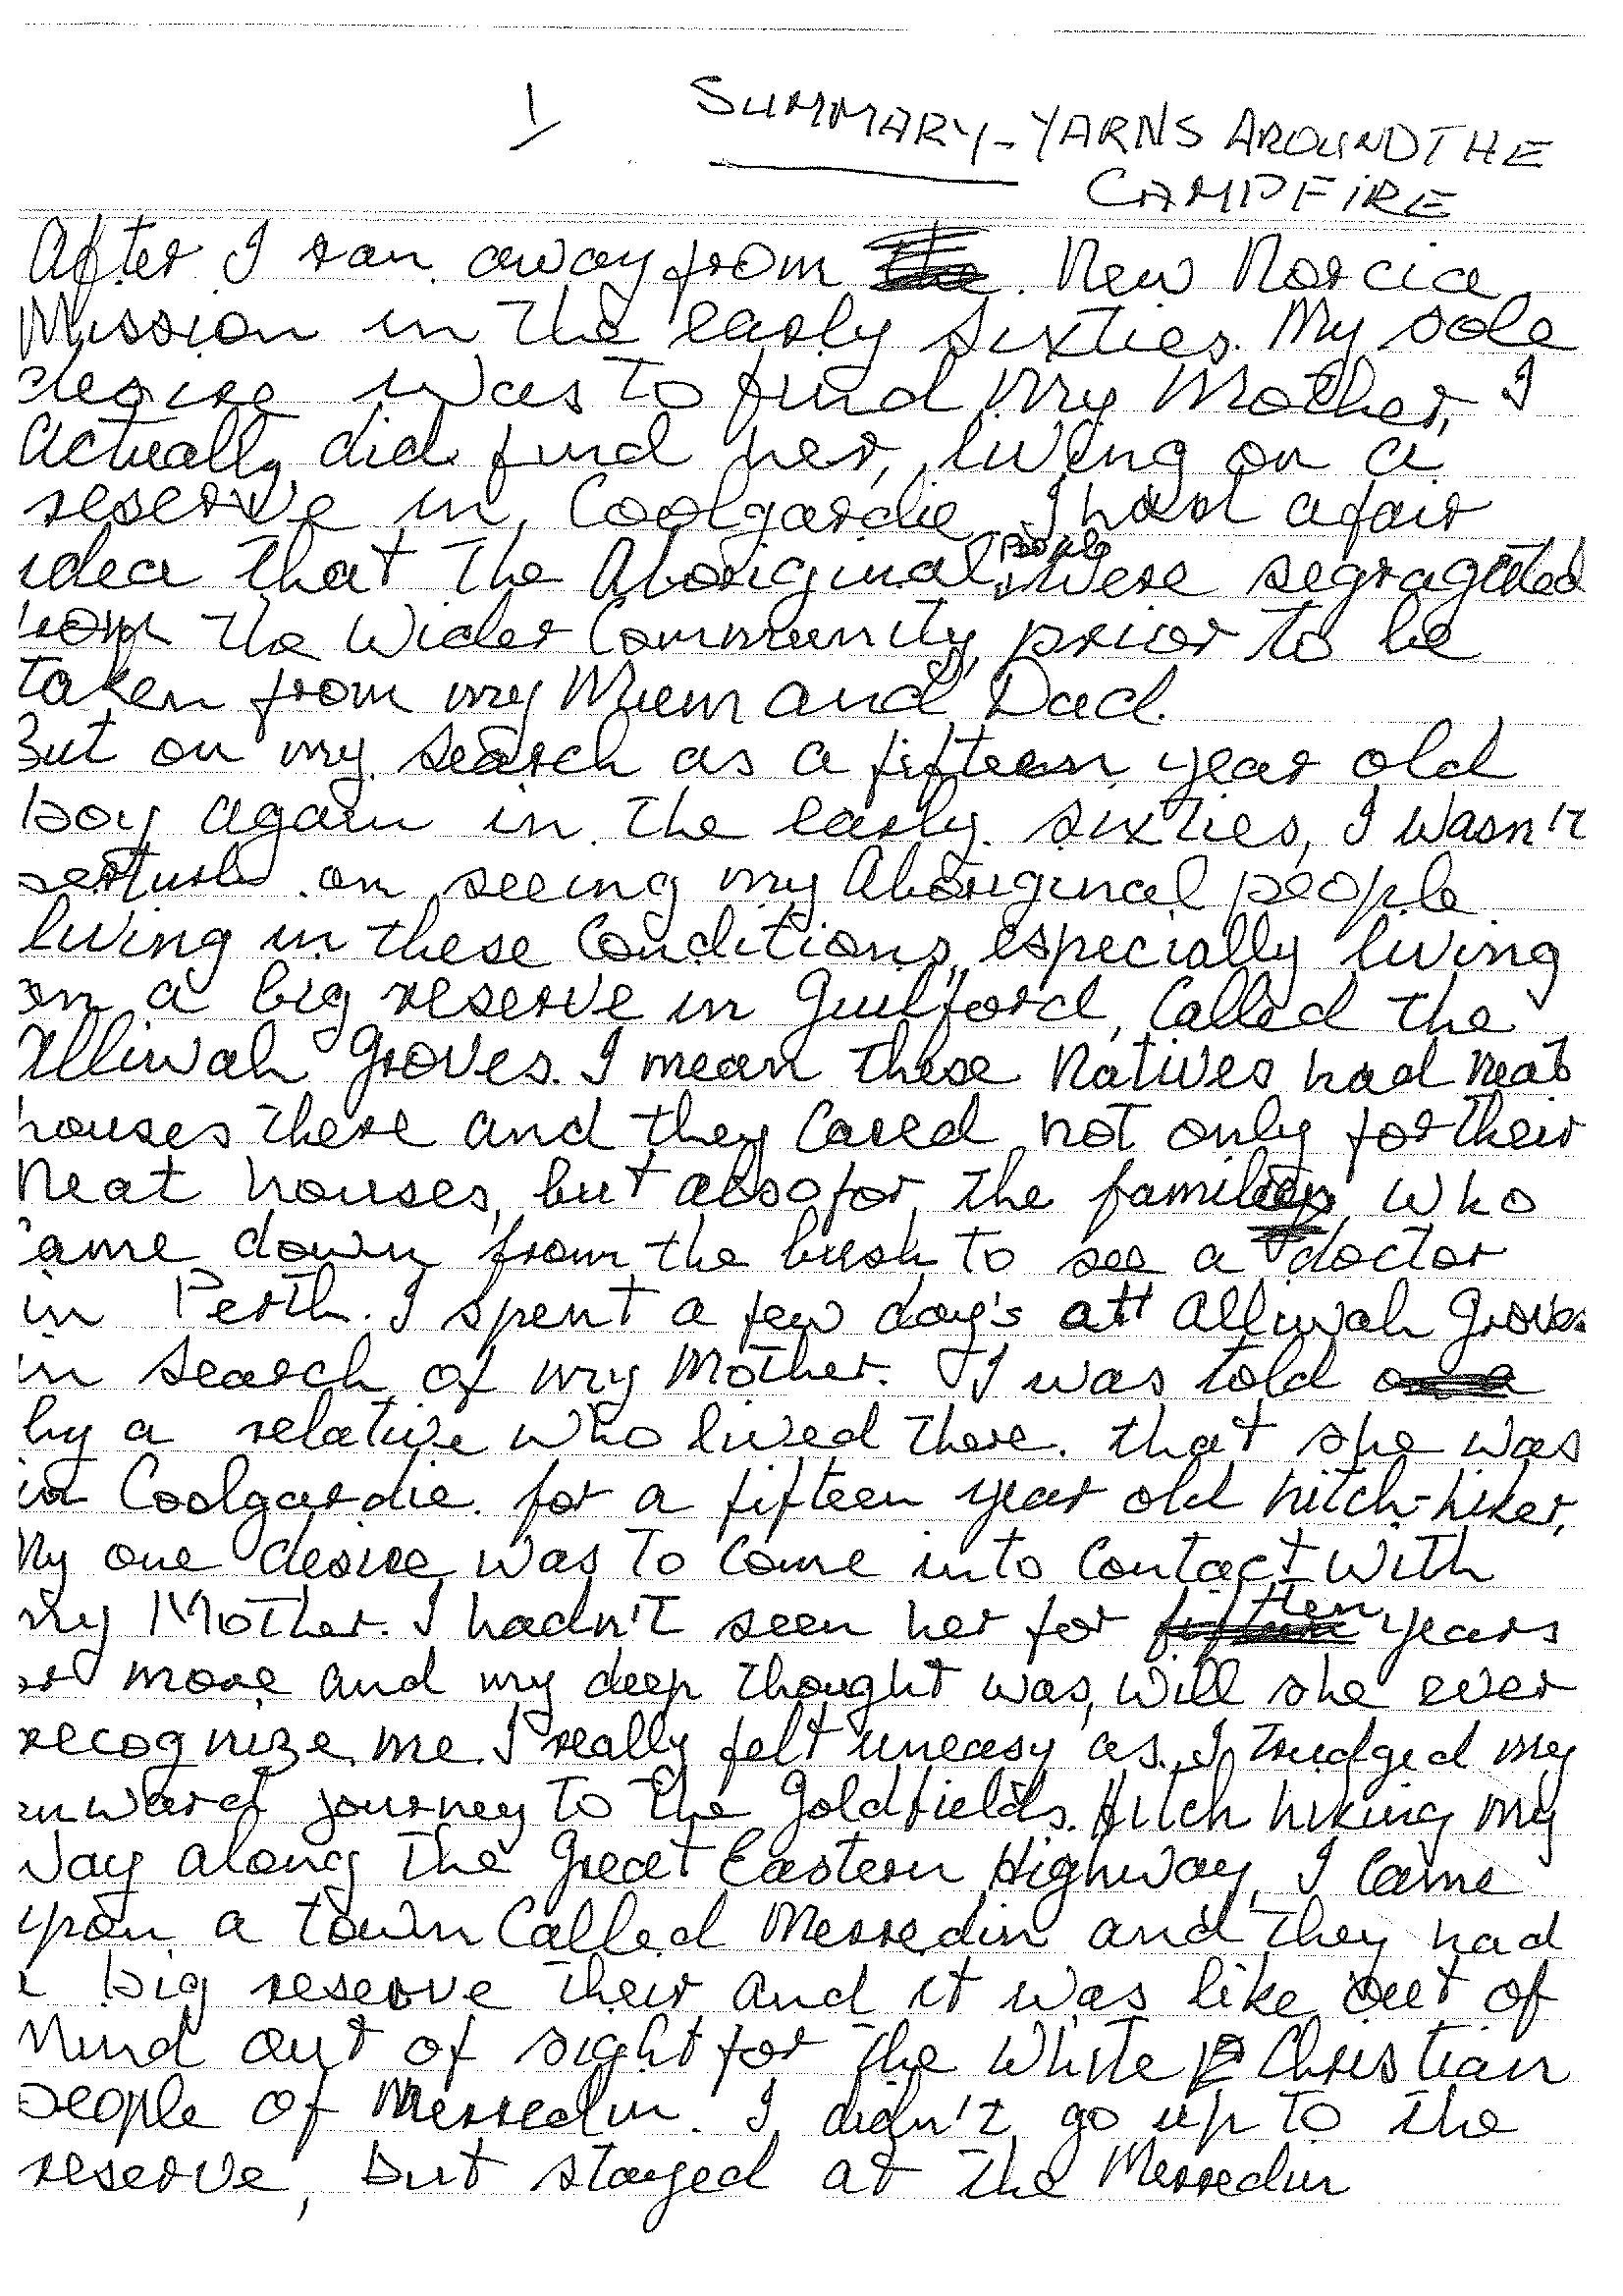 1 SUMMARY - YARNS AROUND THE
CAMPFIRE
After I ran away from the New Norcia
Mission in the early sixties. My sole
desire was to find my Mother, I
Actually did find her, living on a
reserve in Coolgardie I had a fair
idea that the Aboriginal people were segragated
from the Wider Community, prior to be
taken from my Mum and Dad.
But on my search as a fifteen year old
boy again in the early sixties, I wasn't
on seeing my Aboriginal people
living in these Conditions, especially living
on a big reserve in Guilford, Called the
Alliwah Groves. I mean these Natives had neat
houses there and they Cared not only for their
Neat houses, but also for the families who
came down from the bush to see a doctor
in Perth. I spent a few day's at Alliwah Groves
in search of my Mother. I was told on a
by a relative who lived there. that she was
in Coolgardie. for a fifteen year old hitch-hiker,
My one desire was to Come into Contact with
my Mother. I hadn't seen her for fifteen ten years
or more and my deep thought was, will she ever
recognize me I really felt uneasy as I trudged my
onward journey to the Goldfields. Hitch hiking my
Way along the Great Eastern Highway, I Came
upon a town Called Merredin and they had
a big reserve their and it was like out of
Mind out of sight for the White P Christian
people of Merredin. I didn't go up to the
reserve, but stayed at the Merredin